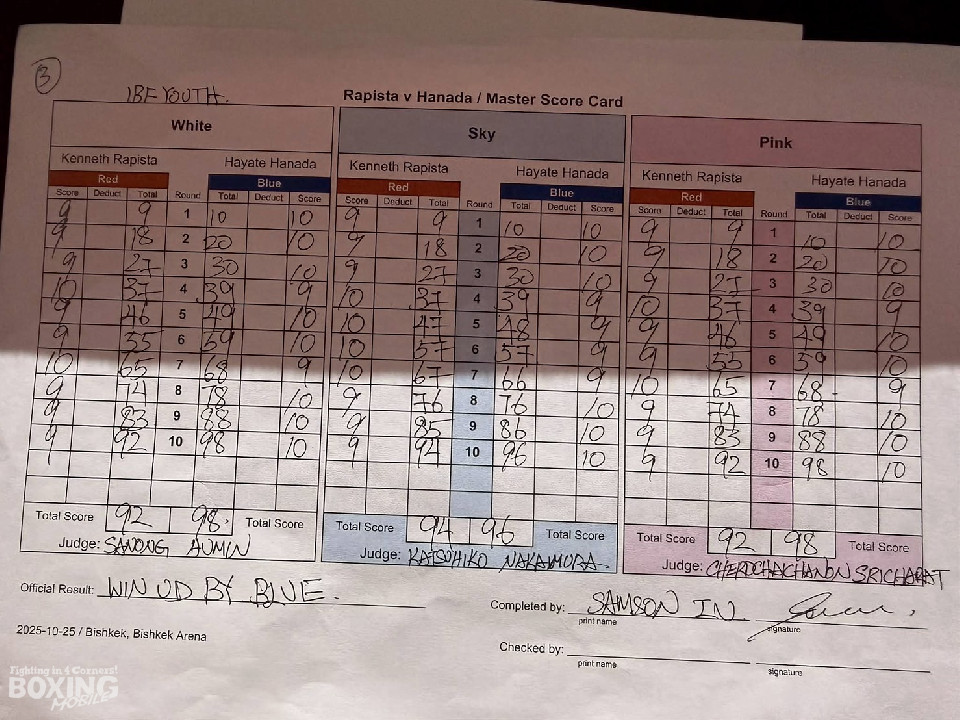 3
IBF YOUTH.
Rapista v Hanada / Master Score Card
White Sky Pink
Kenneth Rapista Hayate Hanada Kenneth Rapista Hayate Hanada Kenneth Rapista Hayate Hanada
Red Blue Red Blue Red Blue
Score Deduct Total Round Total Deduct Score Score Deduct Total Round Total Deduct Score Score Deduct Total Round Total Deduct Score
9 9 1 10 10 9 9 1 10 10 9 9 1 10 10
9 18 2 20 10 9 18 2 20 10 9 18 2 20 10
9 27 3 30 10 9 27 3 30 10 9 27 3 30 10
10 37 4 39 9 10 37 4 39 9 10 37 4 39 9
9 46 5 49 10 10 47 5 48 9 9 46 5 49 10
9 55 6 59 10 10 57 6 57 9 9 55 6 59 10
10 65 7 68 9 10 67 7 66 9 10 65 7 68 9
9 74 8 78 10 9 76 8 76 10 9 74 8 78 10
9 83 9 88 10 9 85 9 86 10 9 83 9 88 10
9 92 10 98 10 9 94 10 96 10 9 92 10 98 10
Total Score 92 98. Total Score Total Score 94 96 Total Score Total Score 92 98 Total Score
Judge: SANONG AUMIN Judge: KATSUHIKO NAKAMURA Judge: CHERDCHAICHANON SRICHARAT
Official Result: WIN UD BY BLUE. Completed by: SAMSON IN
print name signature
2025-10-25 / Bishkek, Bishkek Arena
Checked by:
print name signature
Fighting in 4 Corners!
BOXING
MOBILE